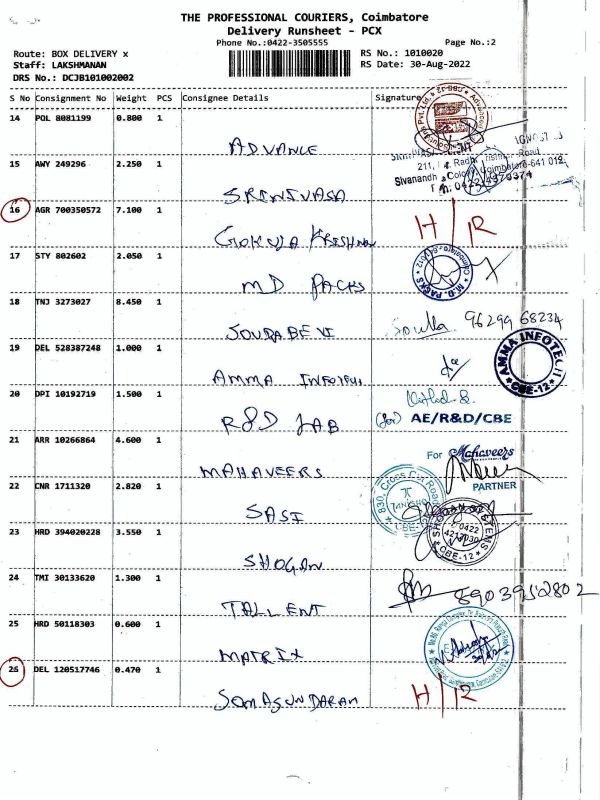 THE PROFESSIONAL COURIERS, Coimbatore
Delivery Runsheet - PCX
Phone No.:0422-3505555
Page No.:2
Route: BOX DELIVERY x
RS No.: 1010020
Staff: LAKSHMANAN
RS Date: 30-Aug-2022
DRS No.: DCJB101002002
S No Consignment No Weight PCS Consignee Details Signature
14 POL 8081199 0.800 1
ADVANCE
15 AWY 249296 2.250 1
SRINIVASA
211,
Sivanandh Colony, Coimbatore-641 012
16 AGR 700350572 7.100 1
H/R
GOKULA KRISHNAN
17 STY 802602 2.050 1
MD PACKS
M.D. PACKS
18 TNJ 3273027 8.450 1
SOURABE VI
96299 68234
19 DEL 528387248 1.000 1
AMMA INFOTECH
AMMA INFOTECH
CBE-12
20 DPI 10192719 1.500 1
R&D LAB
(for) AE/R&D/CBE
21 ARR 10266864 4.600 1
MAHAVEERS
For Mahaveers
PARTNER
22 CNR 1711320 2.820 1
SASI
830, Cross Cut Road
CBE-12
23 HRD 394020228 3.550 1
SHOGAN
0422
CBE-12
24 TMI 30133620 1.300 1
TALLENT
8903952802
25 HRD 50118303 0.600 1
MATRIX
26 DEL 120517746 0.470 1
SOMASUNDARAM
H/R